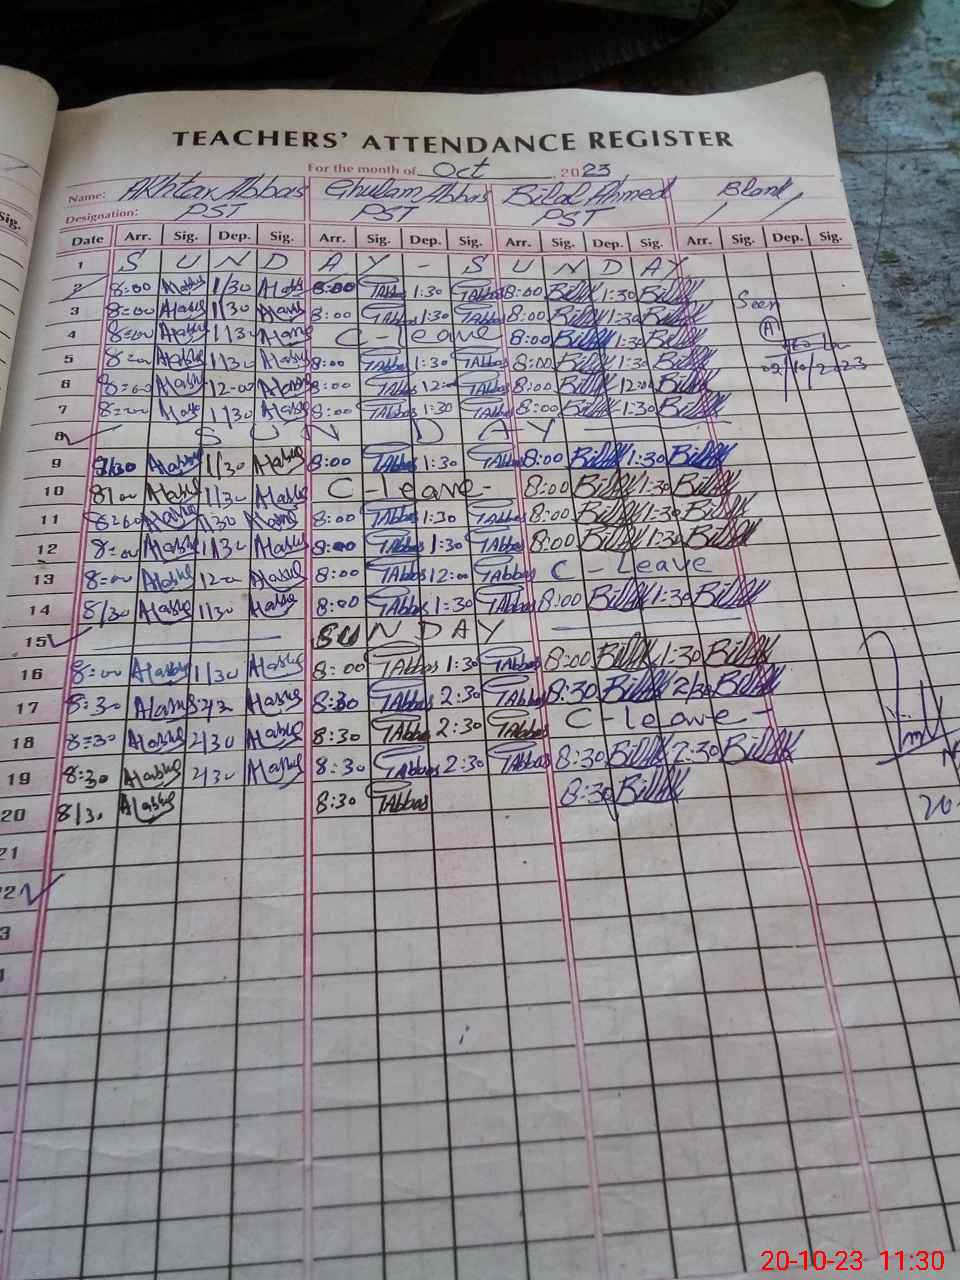 TEACHERS' ATTENDANCE REGISTER
For the month of Oct, 2023
Name: Akhtar Abbas Ghulam Abbas Bilal Ahmed Blank
Designation: PST PST PST
Sig.
Date Arr. Sig. Dep. Sig. Arr. Sig. Dep. Sig. Arr. Sig. Dep. Sig. Arr. Sig. Dep. Sig.
1 S U N D A Y - S U N D A Y
2 8:00 1/30 8:00 TAbbas 1:30 TAbbas 8:00 Bilal 1:30 Bilal
3 8=00 1/30 8:00 TAbbas 1:30 TAbbas 8:00 Bilal 1:30 Bilal Seen
4 8=00 1/30 C-leave 8:00 Bilal 1:30 Bilal A
5 8=00 1/30 8:00 TAbbas 1:30 TAbbas 8:00 Bilal 1:30 Bilal 02/10/2023
6 8=00 12-00 8:00 TAbbas 12:00 TAbbas 8:00 Bilal 12:00 Bilal
7 8=00 1/30 8:00 TAbbas 1:30 TAbbas 8:00 Bilal 1:30 Bilal
8 S U N D A Y
9 1/30 8:00 TAbbas 1:30 TAbbas 8:00 Bilal 1:30 Bilal
10 8/00 1/30 C-leave- 8:00 Bilal 1:30 Bilal
11 8=00 1/30 8:00 TAbbas 1:30 TAbbas 8:00 Bilal 1:30 Bilal
12 8=00 1/30 8:00 TAbbas 1:30 TAbbas 8:00 Bilal 1:30 Bilal
13 8=00 12-00 8:00 TAbbas 12:00 TAbbas C-Leave
14 8/30 1/30 8:00 TAbbas 1:30 TAbbas 8:00 Bilal 1:30 Bilal
15 SUNDAY
16 8=00 1/30 8:00 TAbbas 1:30 TAbbas 8:00 Bilal 1:30 Bilal
17 8=30 8:30 TAbbas 2:30 TAbbas 8:30 Bilal 2/30 Bilal
18 8=30 2/30 8:30 TAbbas 2:30 TAbbas C-leave-
19 8:30 2/30 8:30 TAbbas 2:30 TAbbas 8:30 Bilal 2:30 Bilal
20 8/30 8:30 TAbbas 8:30 Bilal
21
22
3
20-10-23 11:30